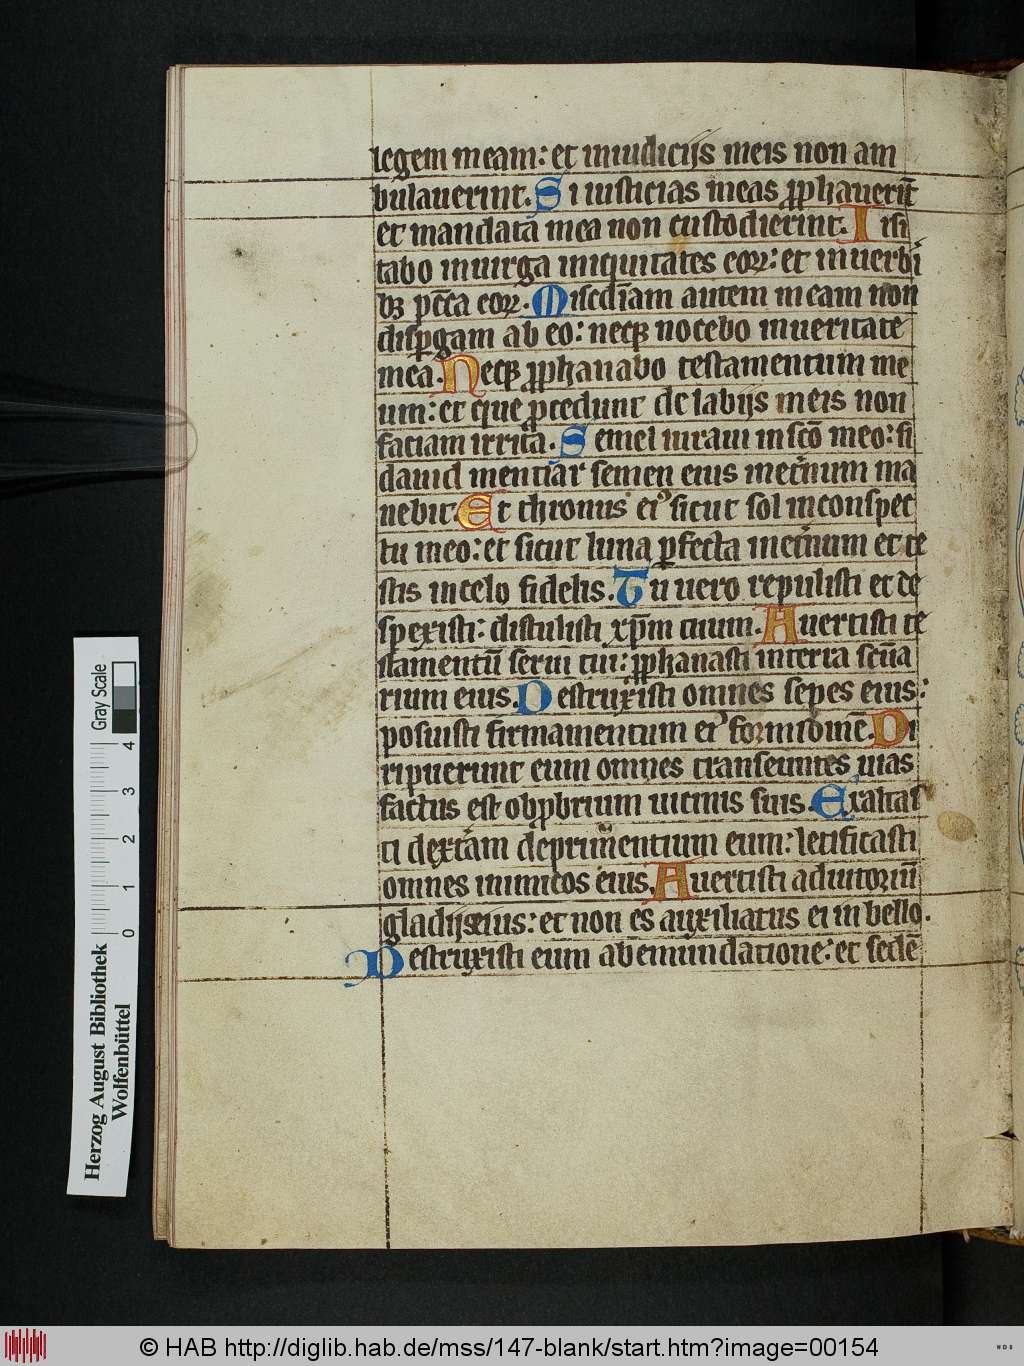 legem meam: et in iudicijs meis non am
bulauerint. Si iusticias meas ꝓphauerīt
et mandata mea non custodierint. Iisi
tabo in uirga iniquitates eoꝝ: et in uerbi
bꝫ pc̄ca eoꝝ. Misc̄diam autem meam non
disꝑgam ab eo: neqꝫ nocebo in ueritate
mea. Neqꝫ ꝓphanabo testamentum me
um: et que ꝓcedunt de labijs meis non
faciam irrita. Semel iuraui in sc̄o meo: si
dauid mentiar semen eius in et̄num ma
nebit Et thronus eiꝰ sicut sol in conspec
tu meo: et sicut luna ꝑfecta in et̄num et te
stis in celo fidelis. Tu uero repulisti et de
spexisti: distulisti xp̄m tuum. Auertisti te
stamentū serui tui: ꝓphanasti in terra sc̄ua
rium eius. Destruxisti omnes sepes eius:
posuisti firmamentum eiꝰ formidinē. Di
ripuerunt eum omnes transeuntes uias
factus est obꝓbrium uicinis suis. Exaltas
ti dext̄am deprimentium eum: letificasti
omnes inimicos eius. Auertisti adiutoriū
gladij eius: et non es auxiliatus ei in bello.
Destruxisti eum ab emundatione: et sedē
Herzog August Bibliothek
Wolfenbüttel
Gray Scale
0 1 2 3 4
© HAB http://diglib.hab.de/mss/147-blank/start.htm?image=00154